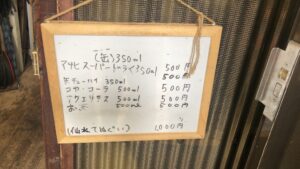 (缶)350ml
アサヒスーパードライ350ml 500円
缶チューハイ 350ml 500円
コカ・コーラ 500ml 500円
アクエリアス 500ml 500円
お茶 500ml 500円
1,000円